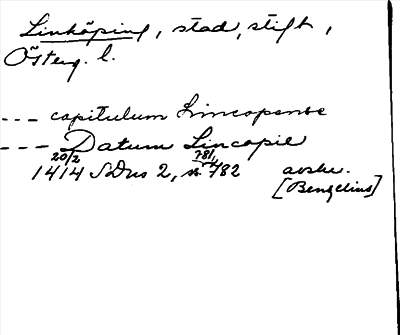 Linköping, stad, stift,
Österg. l.
--- capitulum Lincopense
--- Datum Lincopie
20/2 781,
1414 SDns 2, nr 782 avskr.
[Benzelius]